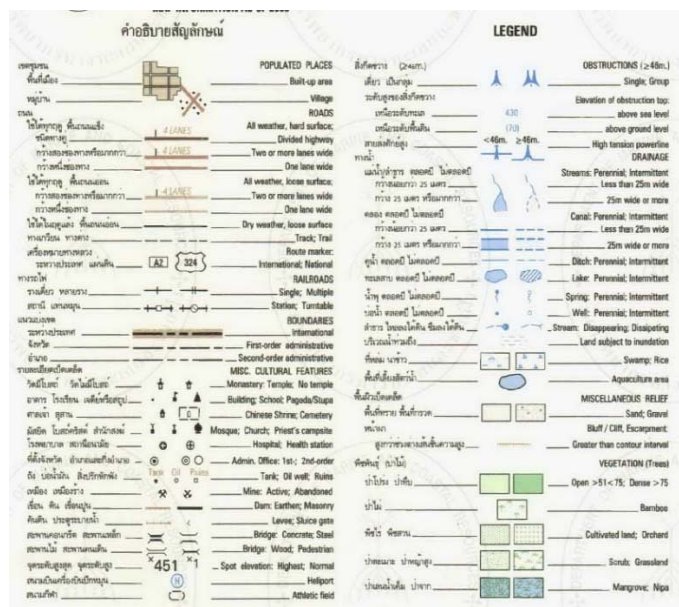 คำอธิบายสัญลักษณ์
เขตชุมชน POPULATED PLACES
พื้นที่เมือง Built-up area
หมู่บ้าน Village
ถนน ROADS
ใช้ได้ทุกฤดู พื้นถนนแข็ง All weather, hard surface;
ชนิดทางคู่ 4 LANES Divided highway
กว้างสองช่องทางหรือมากกว่า 4 LANES Two or more lanes wide
กว้างหนึ่งช่องทาง One lane wide
ใช้ได้ทุกฤดู พื้นถนนอ่อน All weather, loose surface;
กว้างสองช่องทางหรือมากกว่า 4 LANES Two or more lanes wide
กว้างหนึ่งช่องทาง One lane wide
ใช้ได้ในฤดูแล้ง พื้นถนนอ่อน Dry weather, loose surface
ทางเกวียน ทางต่าง Track; Trail
เครื่องหมายทางหลวง Route marker:
ระหว่างประเทศ แผ่นดิน A2 324 International; National
ทางรถไฟ RAILROADS
รางเดี่ยว หลายราง Single; Multiple
สถานี แท่นหมุน Station; Turntable
แนวแบ่งเขต BOUNDARIES
ระหว่างประเทศ International
จังหวัด First-order administrative
อำเภอ Second-order administrative
รายละเอียดเบ็ดเตล็ด MISC. CULTURAL FEATURES
วัดมีโบสถ์ วัดไม่มีโบสถ์ Monastery: Temple; No temple
อาคาร โรงเรียน เจดีย์หรือสถูป Building; School; Pagoda/Stupa
ศาลเจ้า สุสาน Chinese Shrine; Cemetery
มัสยิด โบสถ์คริสต์ สำนักสงฆ์ Mosque; Church; Priest's campsite
โรงพยาบาล สถานีอนามัย Hospital; Health station
ที่ตั้งจังหวัด อำเภอและกิ่งอำเภอ Admin. Office: 1st-; 2nd-order
ถัง บ่อน้ำมัน สิ่งปรักหักพัง Tank Oil Ruins Tank; Oil well; Ruins
เหมือง เหมืองร้าง Mine: Active; Abandoned
เขื่อน ดิน เขื่อนปูน Dam: Earthen; Masonry
คันดิน ประตูระบายน้ำ Levee; Sluice gate
สะพานคอนกรีต สะพานเหล็ก Bridge: Concrete; Steel
สะพานไม้ สะพานคนเดิน Bridge: Wood; Pedestrian
จุดระดับสูงสุด จุดระดับสูง ×451 ×1 Spot elevation: Highest; Normal
สนามบินเครื่องบินปีกหมุน H Heliport
สนามกีฬา Athletic field
LEGEND
สิ่งกีดขวาง (≥46m.) OBSTRUCTIONS (≥46m.)
เดี่ยว เป็นกลุ่ม Single; Group
ระดับสูงของสิ่งกีดขวาง Elevation of obstruction top:
เหนือระดับทะเล 430 above sea level
เหนือระดับพื้นดิน (70) above ground level
สายส่งศักย์สูง <46m. ≥46m. High tension powerline
ทางน้ำ DRAINAGE
แม่น้ำลำธาร ตลอดปี ไม่ตลอดปี Streams: Perennial; Intermittent
กว้างน้อยกว่า 25 เมตร Less than 25m wide
กว้าง 25 เมตร หรือมากกว่า 25m wide or more
คลอง ตลอดปี ไม่ตลอดปี Canal: Perennial; Intermittent
กว้างน้อยกว่า 25 เมตร Less than 25m wide
กว้าง 25 เมตร หรือมากกว่า 25m wide or more
คูน้ำ ตลอดปี ไม่ตลอดปี Ditch: Perennial; Intermittent
ทะเลสาบ ตลอดปี ไม่ตลอดปี Lake: Perennial; Intermittent
น้ำพุ ตลอดปี ไม่ตลอดปี Spring: Perennial; Intermittent
บ่อน้ำ ตลอดปี ไม่ตลอดปี Well: Perennial; Intermittent
ลำธาร ไหลลงใต้ดิน ซึมลงใต้ดิน Stream: Disappearing; Dissipating
บริเวณน้ำท่วมถึง Land subject to inundation
ที่หล่ม นาข้าว Swamp; Rice
พื้นที่เลี้ยงสัตว์น้ำ Aquaculture area
พื้นผิวเบ็ดเตล็ด MISCELLANEOUS RELIEF
พื้นที่ทราย พื้นที่กรวด Sand; Gravel
หน้าผา Bluff / Cliff, Escarpment:
สูงกว่าช่วงต่างเส้นชั้นความสูง Greater than contour interval
พืชพันธุ์ (ป่าไม้) VEGETATION (Trees)
ป่าโปร่ง ป่าทึบ Open >51<75; Dense >75
ป่าไผ่ Bamboo
พืชไร่ พืชสวน Cultivated land; Orchard
ป่าละเมาะ ป่าหญ้าสูง Scrub; Grassland
ป่าเลนน้ำเค็ม ป่าจาก Mangrove; Nipa